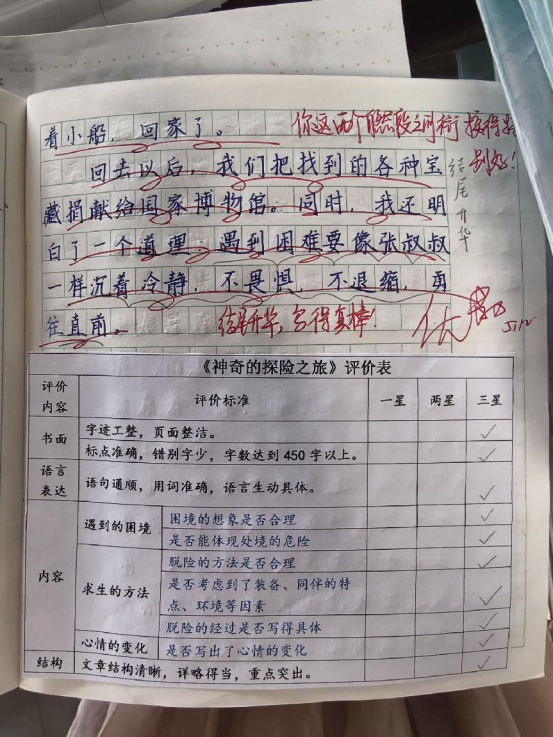 着小船，回家了。
你这两个自然段之间衔接得特
别好！
回去以后，我们把找到的各种宝
藏捐献给国家博物馆。同时，我还明
白了一个道理：遇到困难要像张叔叔
一样沉着冷静，不畏惧，不退缩，勇
往直前。
结尾升华
结尾升华，写得真棒！
优
5.12
《神奇的探险之旅》评价表
评价内容 评价标准 一星 两星 三星
书面 字迹工整，页面整洁。
标点准确，错别字少，字数达到 450 字以上。
语言表达 语句通顺，用词准确，语言生动具体。
内容 遇到的困境 困境的想象是否合理
是否能体现处境的危险
求生的方法 脱险的方法是否合理
是否考虑到了装备、同伴的特
点、环境等因素
脱险的经过是否写得具体
心情的变化 是否写出了心情的变化
结构 文章结构清晰，详略得当，重点突出。